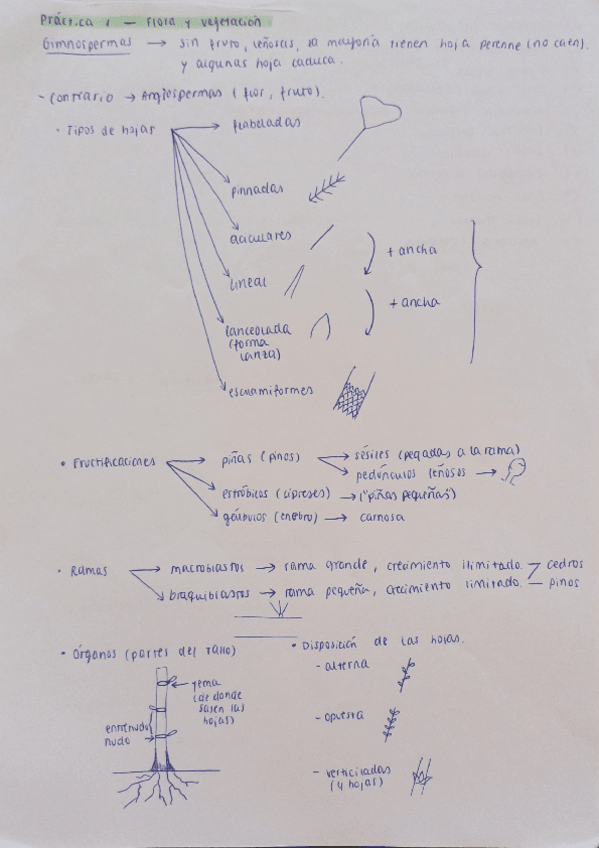 Práctica 1 — Flora y vegetación
Gimnospermas → sin fruto, leñosas, la mayoría tienen hoja perenne (no caen).
y algunas hoja caduca.
- Contrario → Angiospermas (flor, fruto).
· Tipos de hojas → flabeladas
pinnadas
aciculares
+ ancha
lineal
+ ancha
lanceolada
(forma
lanza)
escuamiformes
• Fructificaciones → piñas (pinos) → sésiles (pegadas a la rama)
pedúnculos leñosos →
estróbilos (cipreses) → ("piñas pequeñas")
gálbulos (enebro) → carnosa
· Ramas → macroblastos → rama grande, crecimiento ilimitado. cedros
braquiblastos → rama pequeña, crecimiento limitado. — pinos
• Órganos (partes del tallo)
yema
(de donde
salen las
hojas)
entrenudo
nudo
• Disposición de las hojas.
- alterna
- opuesta
- verticiladas
(4 hojas)